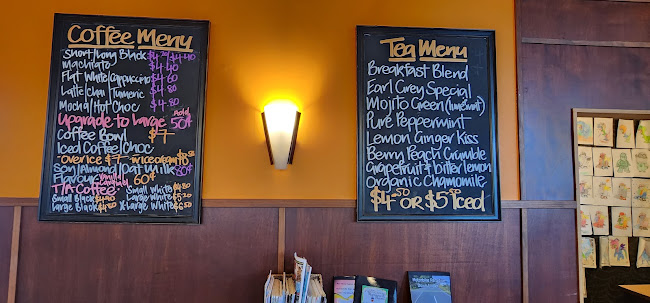 Coffee Menu
Short/Long Black $4.20/$4.40
Machiato $4.40
Flat White/Cappuccino $4.60
Latte/Chai/Turmeric $4.80
Mocha/Hot Choc $4.80
Upgrade to Large 50¢
Coffee $7
Iced Coffee/Choc
over ice $7
Soy/Almond/Oat Milk 80¢
Flavours 60¢
T/A Coffee
Small White
Small Black
Large White
Large Black
X-Large White
Tea Menu
Breakfast Blend
Earl Grey Special
Mojito Green
Pure Peppermint
Lemon Ginger Kiss
Berry Peach Crumble
Grapefruit & bitter lemon
Organic Chamomile
$4.50 OR $5.50 Iced